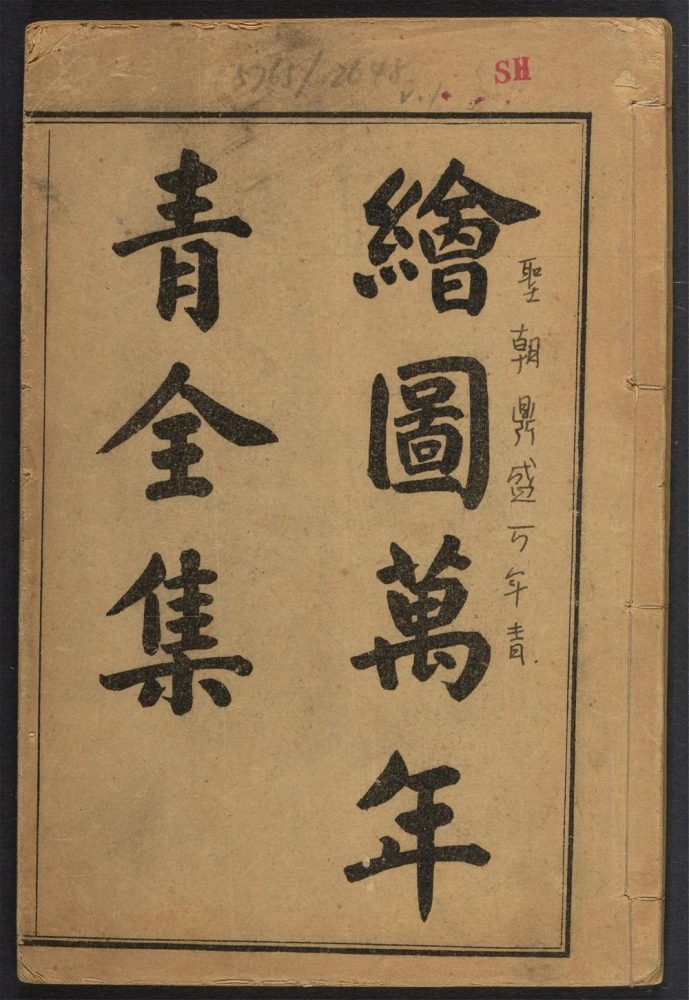 SH
v.1
繪圖萬年
青全集
聖朝鼎盛万年青.